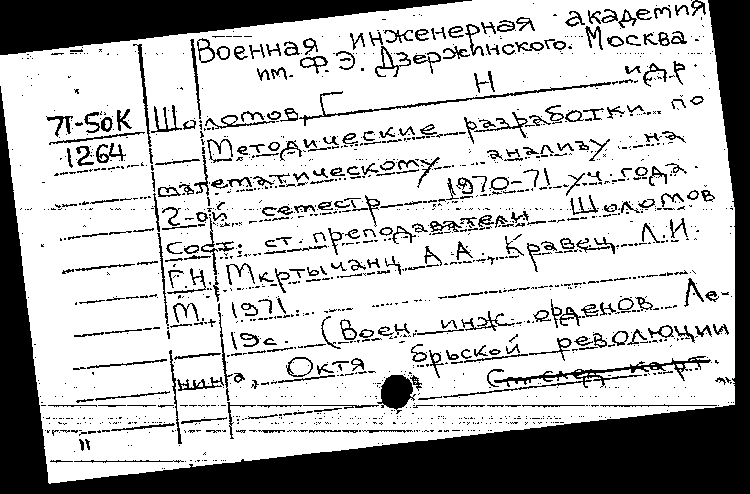 Военная инженерная академия
им. Ф. Э. Дзержинского. Москва.
71-50К Шоломов, Г Н и др.
1264 Методические разработки по
математическому анализу на
2-ой семестр 1970-71 уч. года.
Сост: ст. преподаватели Шоломов
Г.Н. Мкртычанц А.А., Кравец Л.И.
М., 1971.
19с. (Воен. инж. орденов Ле-
нина, Октябрьской революции
См след карт.